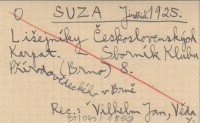 O SUZA Jindř. 1925.
Lišejníky Československých
Karpat. Sborník Klubu
Přírodovědeckého v Brně
(Brno) 8.
Rec.: Vilhelm Jan, Věda